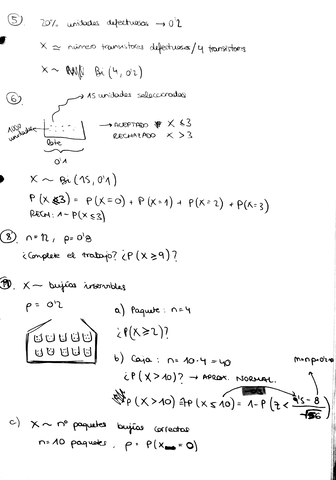 5. 20% unidades defectuosas → 0'2
X ≡ número transistores defectuosos / 4 transistores
X ~ Bi (4, 0'2)
6. → 15 unidades seleccionadas
1000 unidades
Lote
0'1
→ ACEPTADO X ≤ 3
→ RECHAZADO X > 3
X ~ Bi (15, 0'1)
P (X ≤ 3) = P (X=0) + P (X=1) + P (X=2) + P (X=3)
RECH: 1 - P (X ≤ 3)
8. n = 12, p = 0'8
¿Complete el trabajo? ¿P (X ≥ 9)?
X ~ bujías inservibles
p = 0'2
a) Paquete: n = 4
¿P (X ≥ 2)?
b) Caja: n = 10·4 = 40
¿P (X > 10)? → APROX. NORMAL.
P (X > 10) = 1 - P (X ≤ 10) = 1 - P (Z <
c) X ~ nº paquetes bujías correctas
n = 10 paquetes. p = P (X = 0)